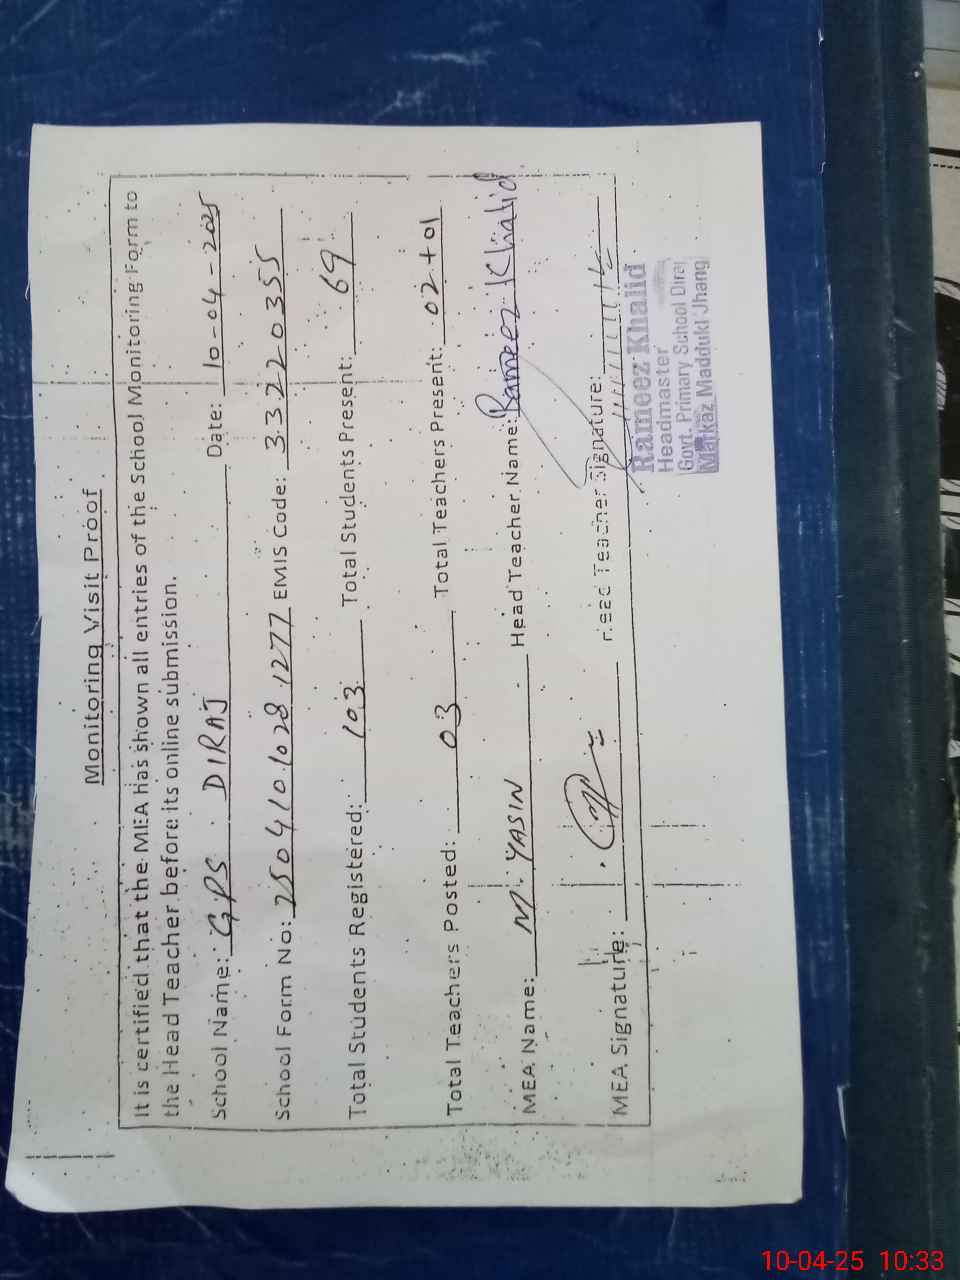 Monitoring Visit Proof
It is certified that the MEA has shown all entries of the School Monitoring Form to
the Head Teacher before its online submission.
School Name: GPS DIRAJ Date: 10-04-2025
School Form No: 2504101028 1277 EMIS Code: 33220355
Total Students Registered: 103 Total Students Present: 69
Total Teachers Posted: 03 Total Teachers Present: 02+01
MEA Name: M. YASIN Head Teacher Name: Rameez Khalid
MEA Signature: Head Teacher Signature:
Rameez Khalid
Headmaster
Govt. Primary School Diraj
Markaz Madduki Jhang
10-04-25 10:33